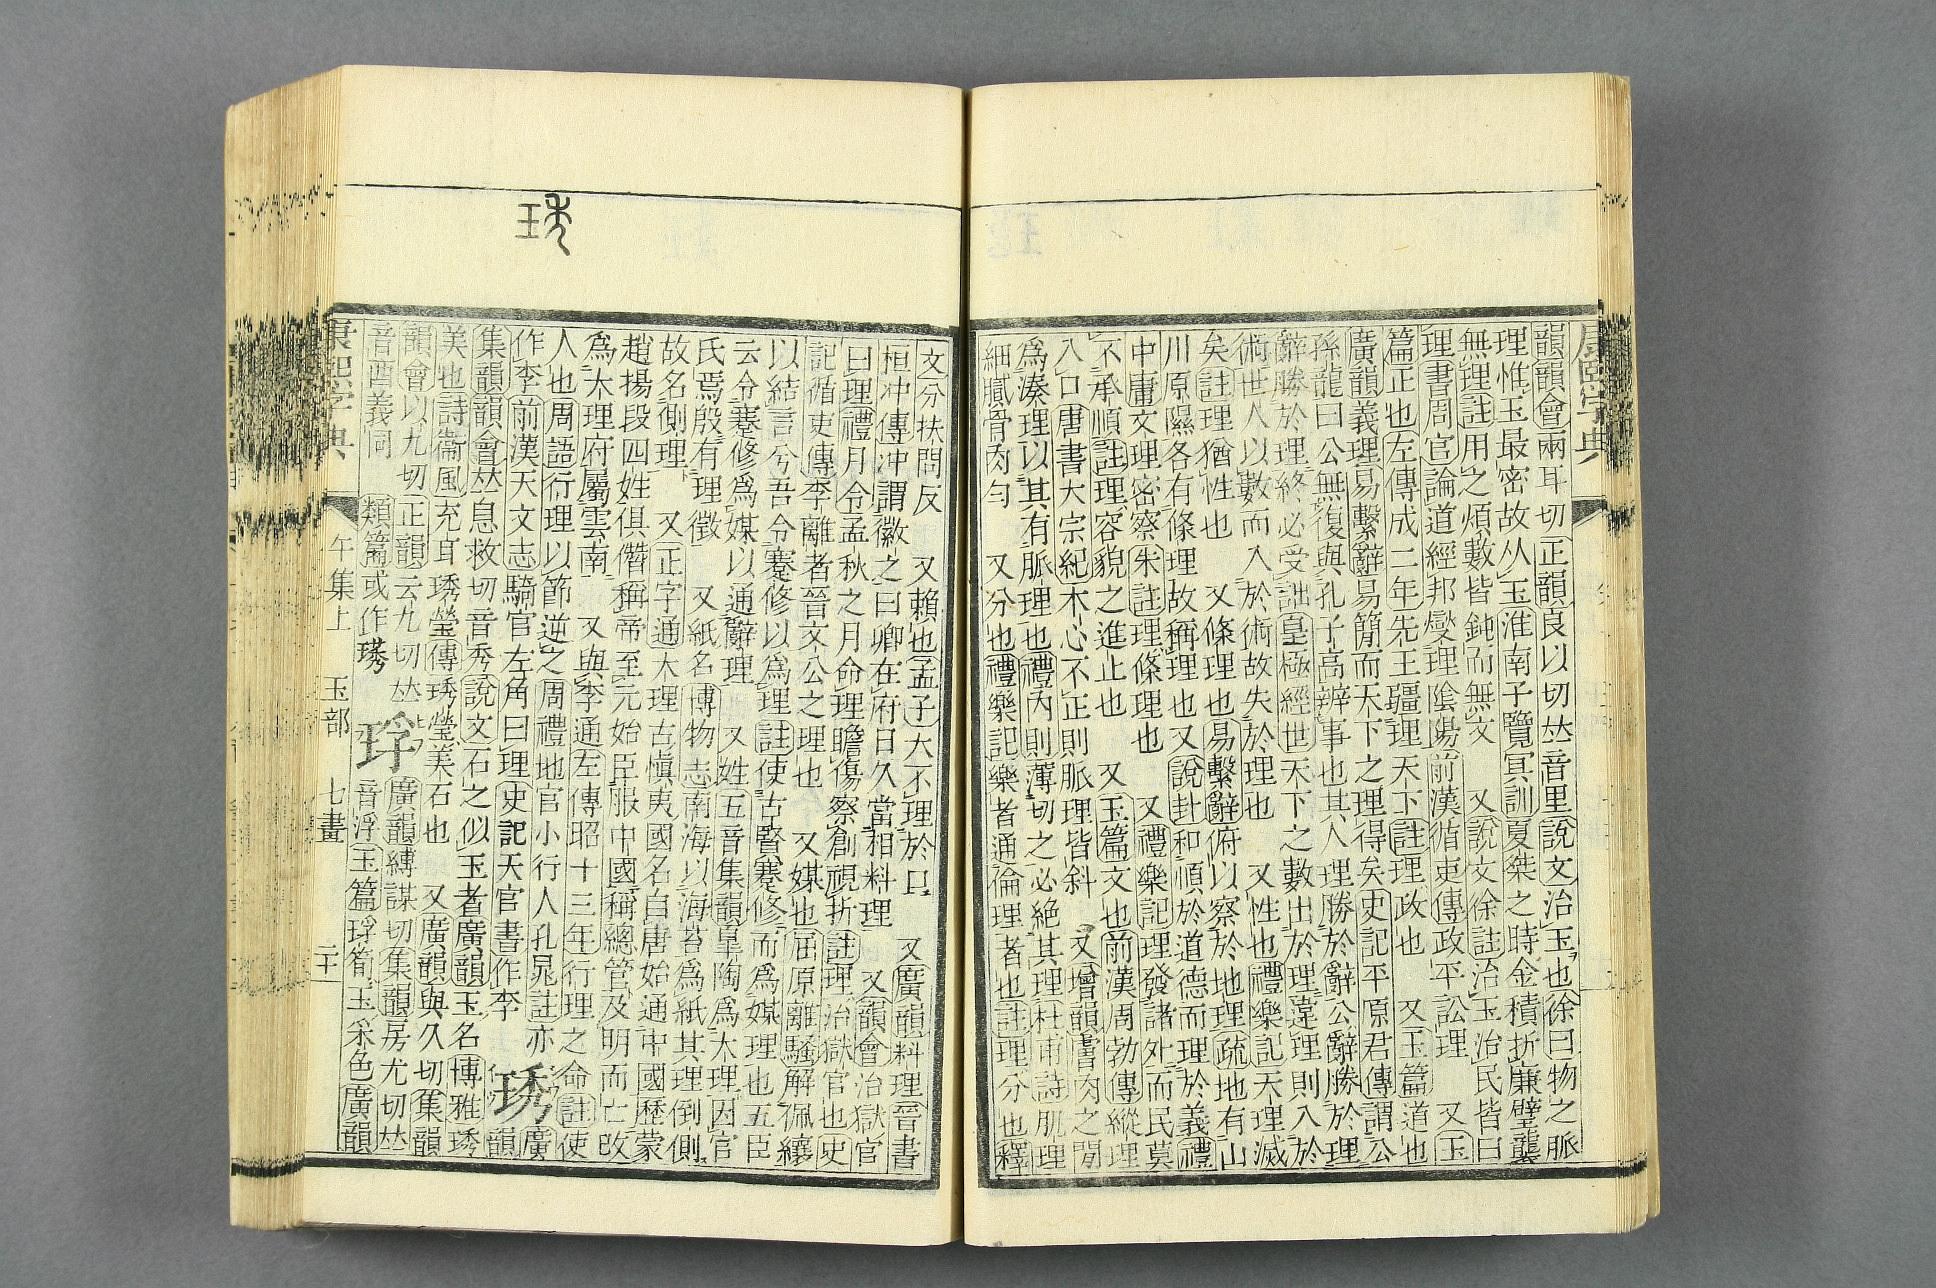 康熙字典
韻韻會兩耳切正韻良以切𠀤音里說文治玉也徐曰物之脈
理惟玉最密故从玉淮南子覽冥訓夏桀之時金積折廉璧襲
無理註用之煩數皆鈍而無文 又說文徐註治玉治民皆曰
理書周官論道經邦燮理陰陽前漢循吏傳政平訟理 又玉
篇正也左傳成二年先王疆理天下註理政也 又玉篇道也
廣韻義理易繫辭易簡而天下之理得矣史記平原君傳謂公
孫龍曰公無復與孔子高辨事也其人理勝於辭公辭勝於理
辭勝於理終必受詘皇極經世天下之數出於理違理則入於
術世人以數而入於術故失於理也 又性也禮樂記天理滅
矣註理猶性也 又條理也易繫辭俯以察於地理疏地有山
川原隰各有條理故稱理也又說卦和順於道德而理於義禮
中庸文理密察朱註理條理也 又禮樂記理發諸外而民莫
不承順註理容貌之進止也 又玉篇文也前漢周勃傳縱理
入口唐書大宗紀木心不正則脈理皆斜 又增韻膚肉之閒
爲湊理以其有脈理也禮內則薄切之必絕其理杜甫詩肌理
細膩骨肉勻 又分也禮樂記樂者通倫理者也註理分也釋
文分扶問反 又賴也孟子大不理於口 又廣韻料理晉書
桓冲傳冲謂徽之曰卿在府日久當相料理 又韻會治獄官
曰理禮月令孟秋之月命理瞻傷察創視折註理治獄官也史
記循吏傳李離者晉文公之理也 又媒也屈原離騷解佩纕
以結言兮吾令蹇修以爲理註使古賢蹇修而爲媒理也五臣
云令蹇修爲媒以通辭理 又姓五音集韻皐陶爲大理因官
氏焉殷有理徵 又紙名博物志南海以海苔爲紙其理倒側
故名側理 又正字通大理古愼夷國名自唐始通中國歷蒙
趙揚段四姓俱僭稱帝至元始臣服中國稱總管及明而亡改
爲大理府屬雲南 又與李通左傳昭十三年行理之命註使
人也周語行理以節逆之周禮地官小行人孔晁註亦
作李前漢天文志騎官左角曰理史記天官書作李 琇 廣韻
集韻韻會𠀤息救切音秀說文石之似玉者廣韻玉名博雅琇
美也詩衞風充耳琇瑩傳琇瑩美石也 又廣韻與久切集韻
韻會以九切正韻云九切𠀤
音酉義同 類篇或作璓 琈 廣韻縛謀切集韻房尤切𠀤
音浮玉篇琈筍玉采色廣韻
康熙字典 午集上 玉部 七畫 二十
琇